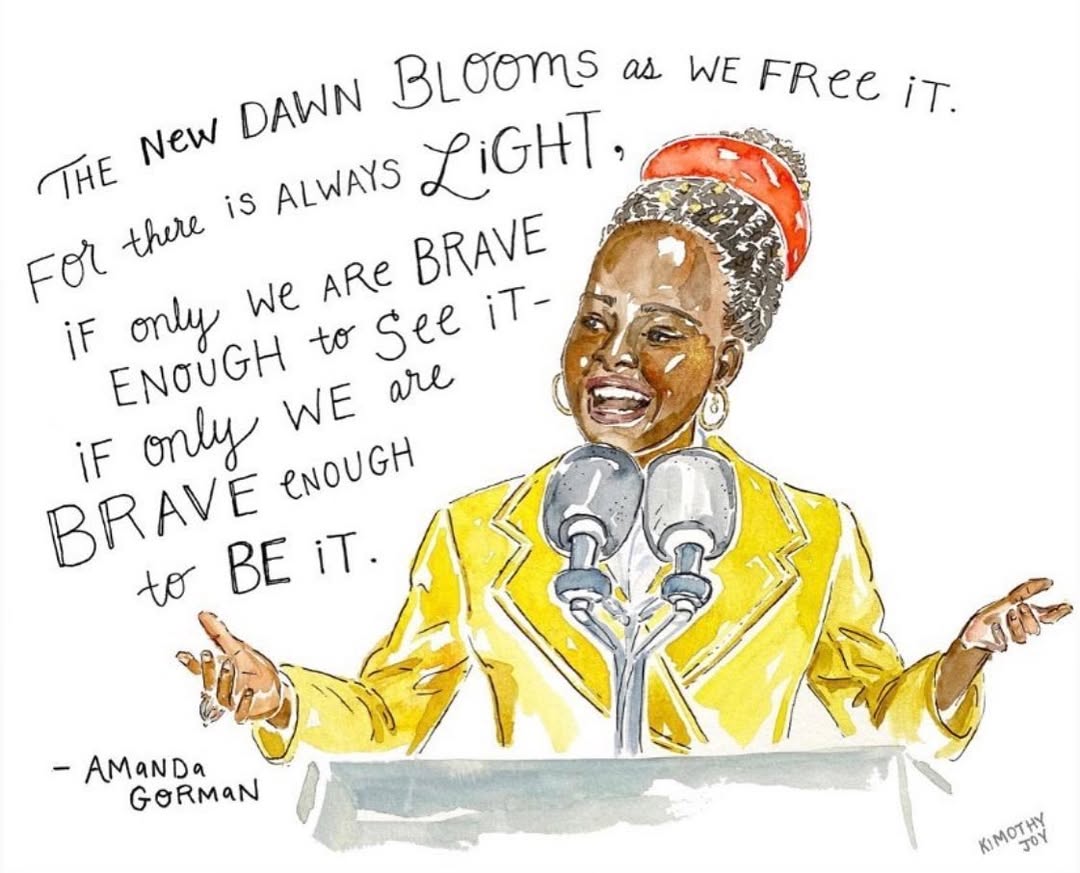 THE New DAWN BLOOMS as WE FRee iT.
FOR there iS ALWAYS LiGHT,
iF only We ARe BRAVE
ENOUGH to See iT-
iF only WE are
BRAVE eNOUGH
to BE iT.
- AMaNDa
GORMaN
KIMOTHY
JOY